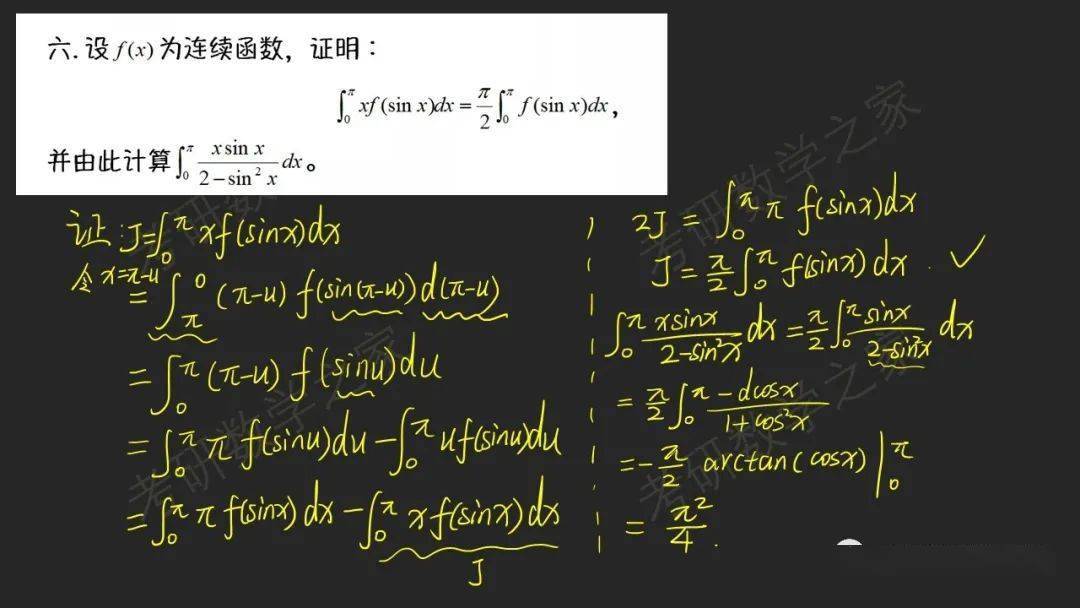 六. 设 f(x) 为连续函数，证明：
∫₀^π xf(sin x)dx = π/2 ∫₀^π f(sin x)dx，
并由此计算 ∫₀^π (x sin x)/(2−sin² x) dx。
证: J=∫₀^π xf(sinx)dx
令 x=π-u
= ∫_π^0 (π-u) f(sin(π-u)) d(π-u)
= ∫₀^π (π-u) f(sinu)du
= ∫₀^π π f(sinu)du − ∫₀^π uf(sinu)du
= ∫₀^π π f(sinx)dx − ∫₀^π xf(sinx)dx
J
2J = ∫₀^π π f(sinx)dx
J = π/2 ∫₀^π f(sinx)dx . ✓
∫₀^π (xsinx)/(2−sin²x) dx = π/2 ∫₀^π (sinx)/(2−sin²x) dx
= π/2 ∫₀^π (−dcosx)/(1+cos²x)
= −π/2 arctan(cosx) |₀^π
= π²/4 .
考研数学之家
考研数学之家
考研数学之家
考研数学之家